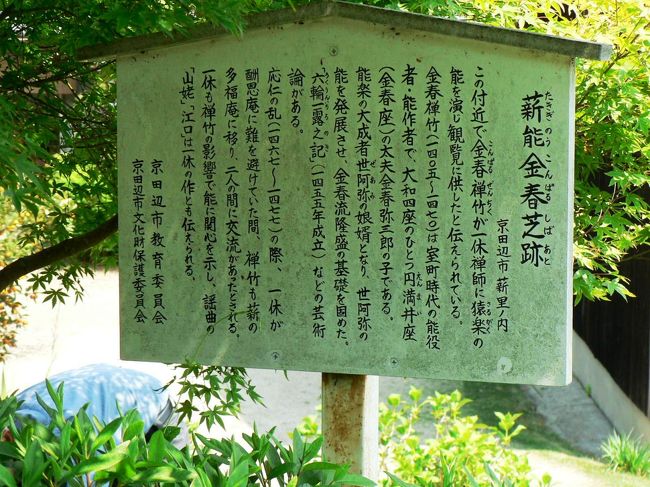 薪能金春芝跡
たきぎのう こんぱる しば あと
京田辺市薪里ノ内
この付近で金春禅竹が一休禅師に猿楽の
能を演じ観覧に供したと伝えられている。
金春禅竹(一四〇五〜一四七〇)は室町時代の能役
者・能作者で、大和四座のひとつ円満井座
(金春座)の太夫金春弥三郎の子である。
能楽の大成者世阿弥の娘婿となり、世阿弥の
能を発展させ、金春流隆盛の基礎を固めた。
六輪一露之記(一四五五年成立)などの芸術
論がある。
応仁の乱(一四六七〜一四七七)の際、一休が
酬恩庵に難を避けていた間、禅竹も薪の
多福庵に移り、二人の間に交流があったとされる。
一休も禅竹の影響で能に関心を示し、謡曲の
「山姥」「江口」は一休の作とも伝えられる。
京田辺市教育委員会
京田辺市文化財保護委員会